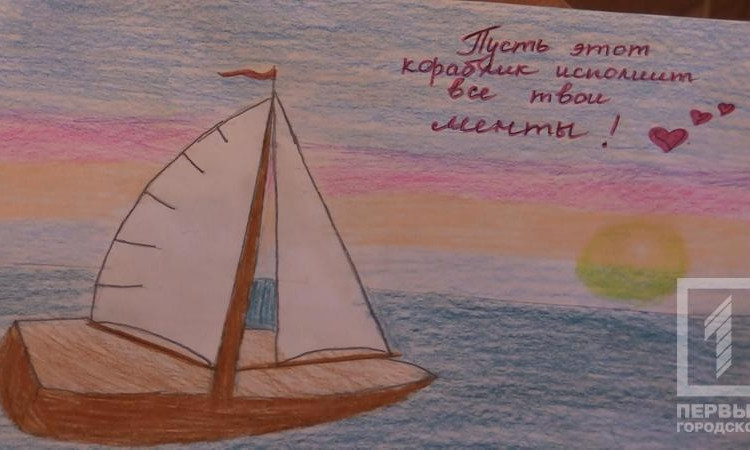 Пусть этот
кораблик исполнит
все твои
менты!
1
ПЕРВЫ
ГОРОДСКО